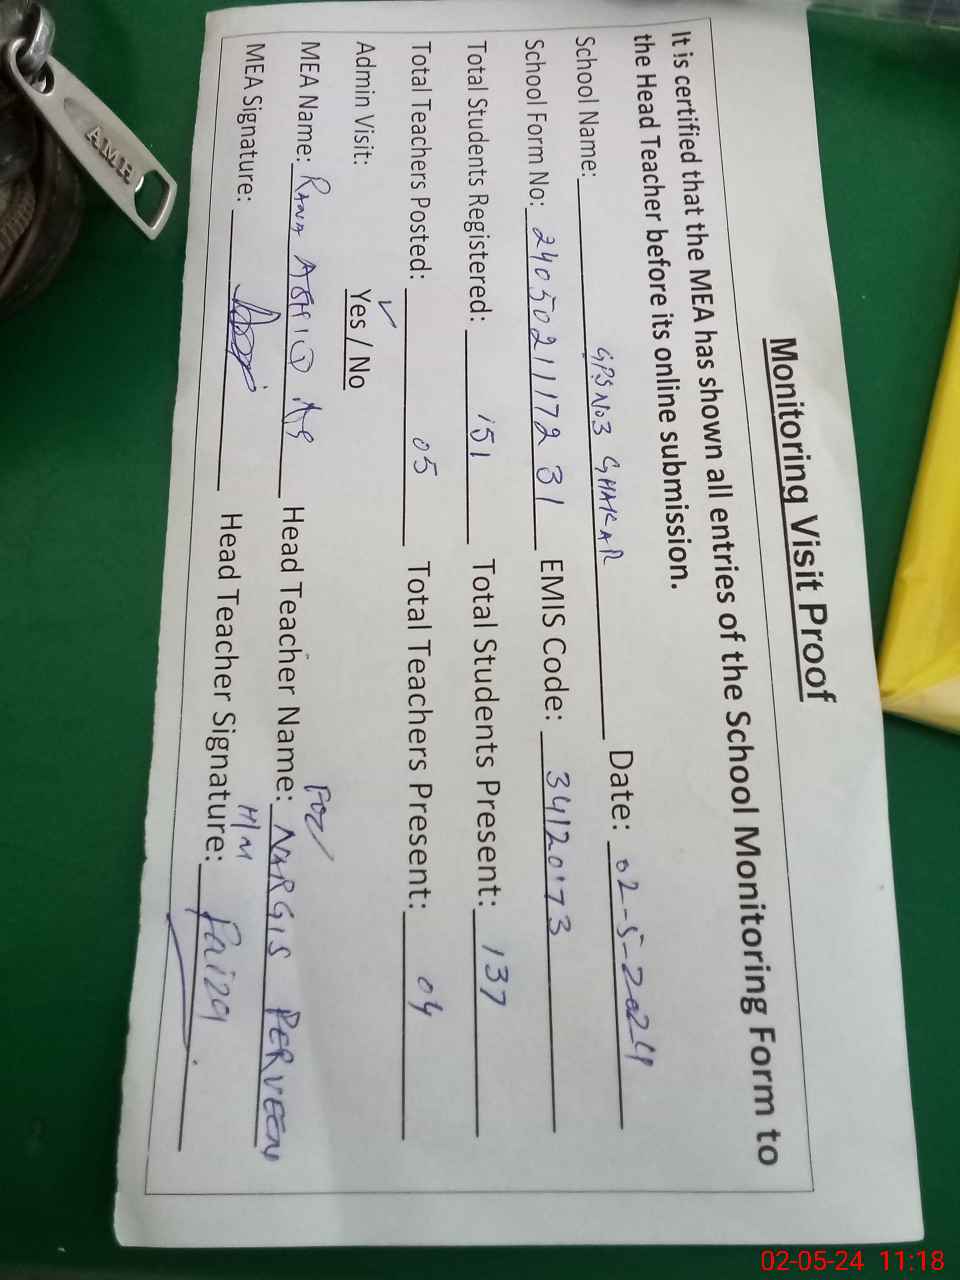 Monitoring Visit Proof
It is certified that the MEA has shown all entries of the School Monitoring Form to
the Head Teacher before its online submission.
School Name: GPS No3 GHAKAR Date: 02-5-2024
School Form No: 24050211172 31 EMIS Code: 34120173
Total Students Registered: 151 Total Students Present: 137
Total Teachers Posted: 05 Total Teachers Present: 04
Admin Visit: Yes / No ✓
For
MEA Name: RANA ASHIQ Head Teacher Name: NARGIS PERVEEN
H/M
MEA Signature: Head Teacher Signature: Faiza
AMR
02-05-24 11:18